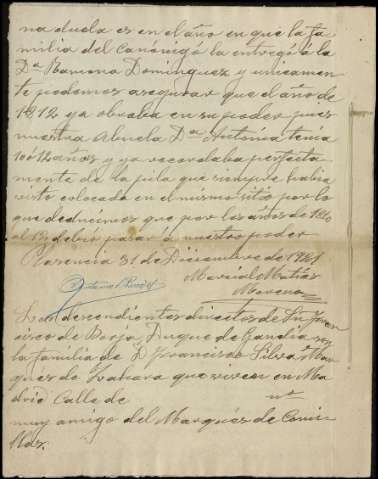 na duda es en el año en que la fa
milia del Canónigo la entregó á la
Dª Ramona Dominguez y unicamen
te podemos asegurar que el año de
1812 ya obraba en su poder pues
nuestra Abuela Dª Antonia tenia
10 ó 12 años y ya recordaba perfecta
mente de la pila que siempre habia
visto colocada en el mismo sitio por lo
que deducimos que por los años de 1810
al 12 debió pasar á nuestro poder
Plasencia 31 de Diciembre de
Marcial Matías
Moreno
Los descendientes directos de Sn Fran
cisco de Borja Duque de Gandia son
la familia de D Francisco Silva Mar
qués de Zahara que viven en Ma
drid Calle de nº
muy amigo del Marqués de Comi
llas.